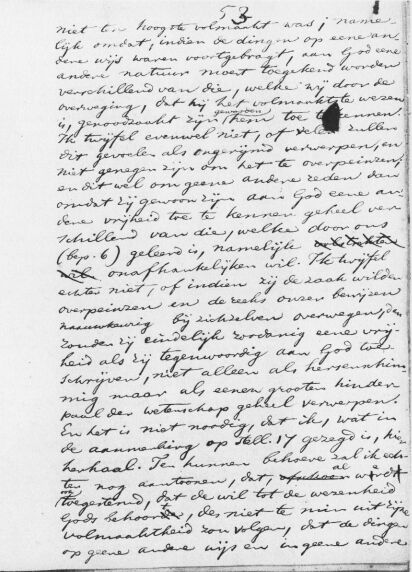 53
niet ten hoogste volmaakt was; name-
lijk omdat, indien de dingen op eene an-
dere wijs waren voortgebragt, aan God eene
andere natuur moest toegekend worden
verschillend van die, welke wij door de
overweging, dat hij het volmaaktste wezen
is, genoodzaakt zijn geworden hem toe te kennen.
Ik twijfel evenwel niet, of velen zullen
dit gevoelen als ongerijmd verwerpen, en
niet genegen zijn om het te overpeinzen,
en dit wel om geene andere reden dan
omdat zij gewoon zijn aan God eene an-
dere vrijheid toe te kennen geheel ver-
schillend van die, welke door ons
(bep. 6) geleerd is, namelijk
wil onafhankelijken wil. Ik twijfel
echter niet, of indien zij de zaak wilden
overpeinzen en de reeks onzer bewijzen
naauwkeurig bij zichzelven overwegen, den
zouden zij eindelijk zoodanig eene vrij-
heid als zij tegenwoordig aan God toe-
schrijven, niet alleen als hersenschim-
mig maar als eenen grooten hinder-
paal der wetenschap geheel verwerpen.
En het is niet noodig, dat ik, wat in
de aanmerking op Stell. 17 gezegd is, hier
herhaal. Ten hunnen behoeve zal ik ech-
ter nog aantoonen, dat, al werdt
toegestemd, dat de wil tot de wezenheid
Gods behoorde, des niet te min uit zijne
volmaaktheid zou volgen, dat de dingen
op geene andere wijs en in geene andere